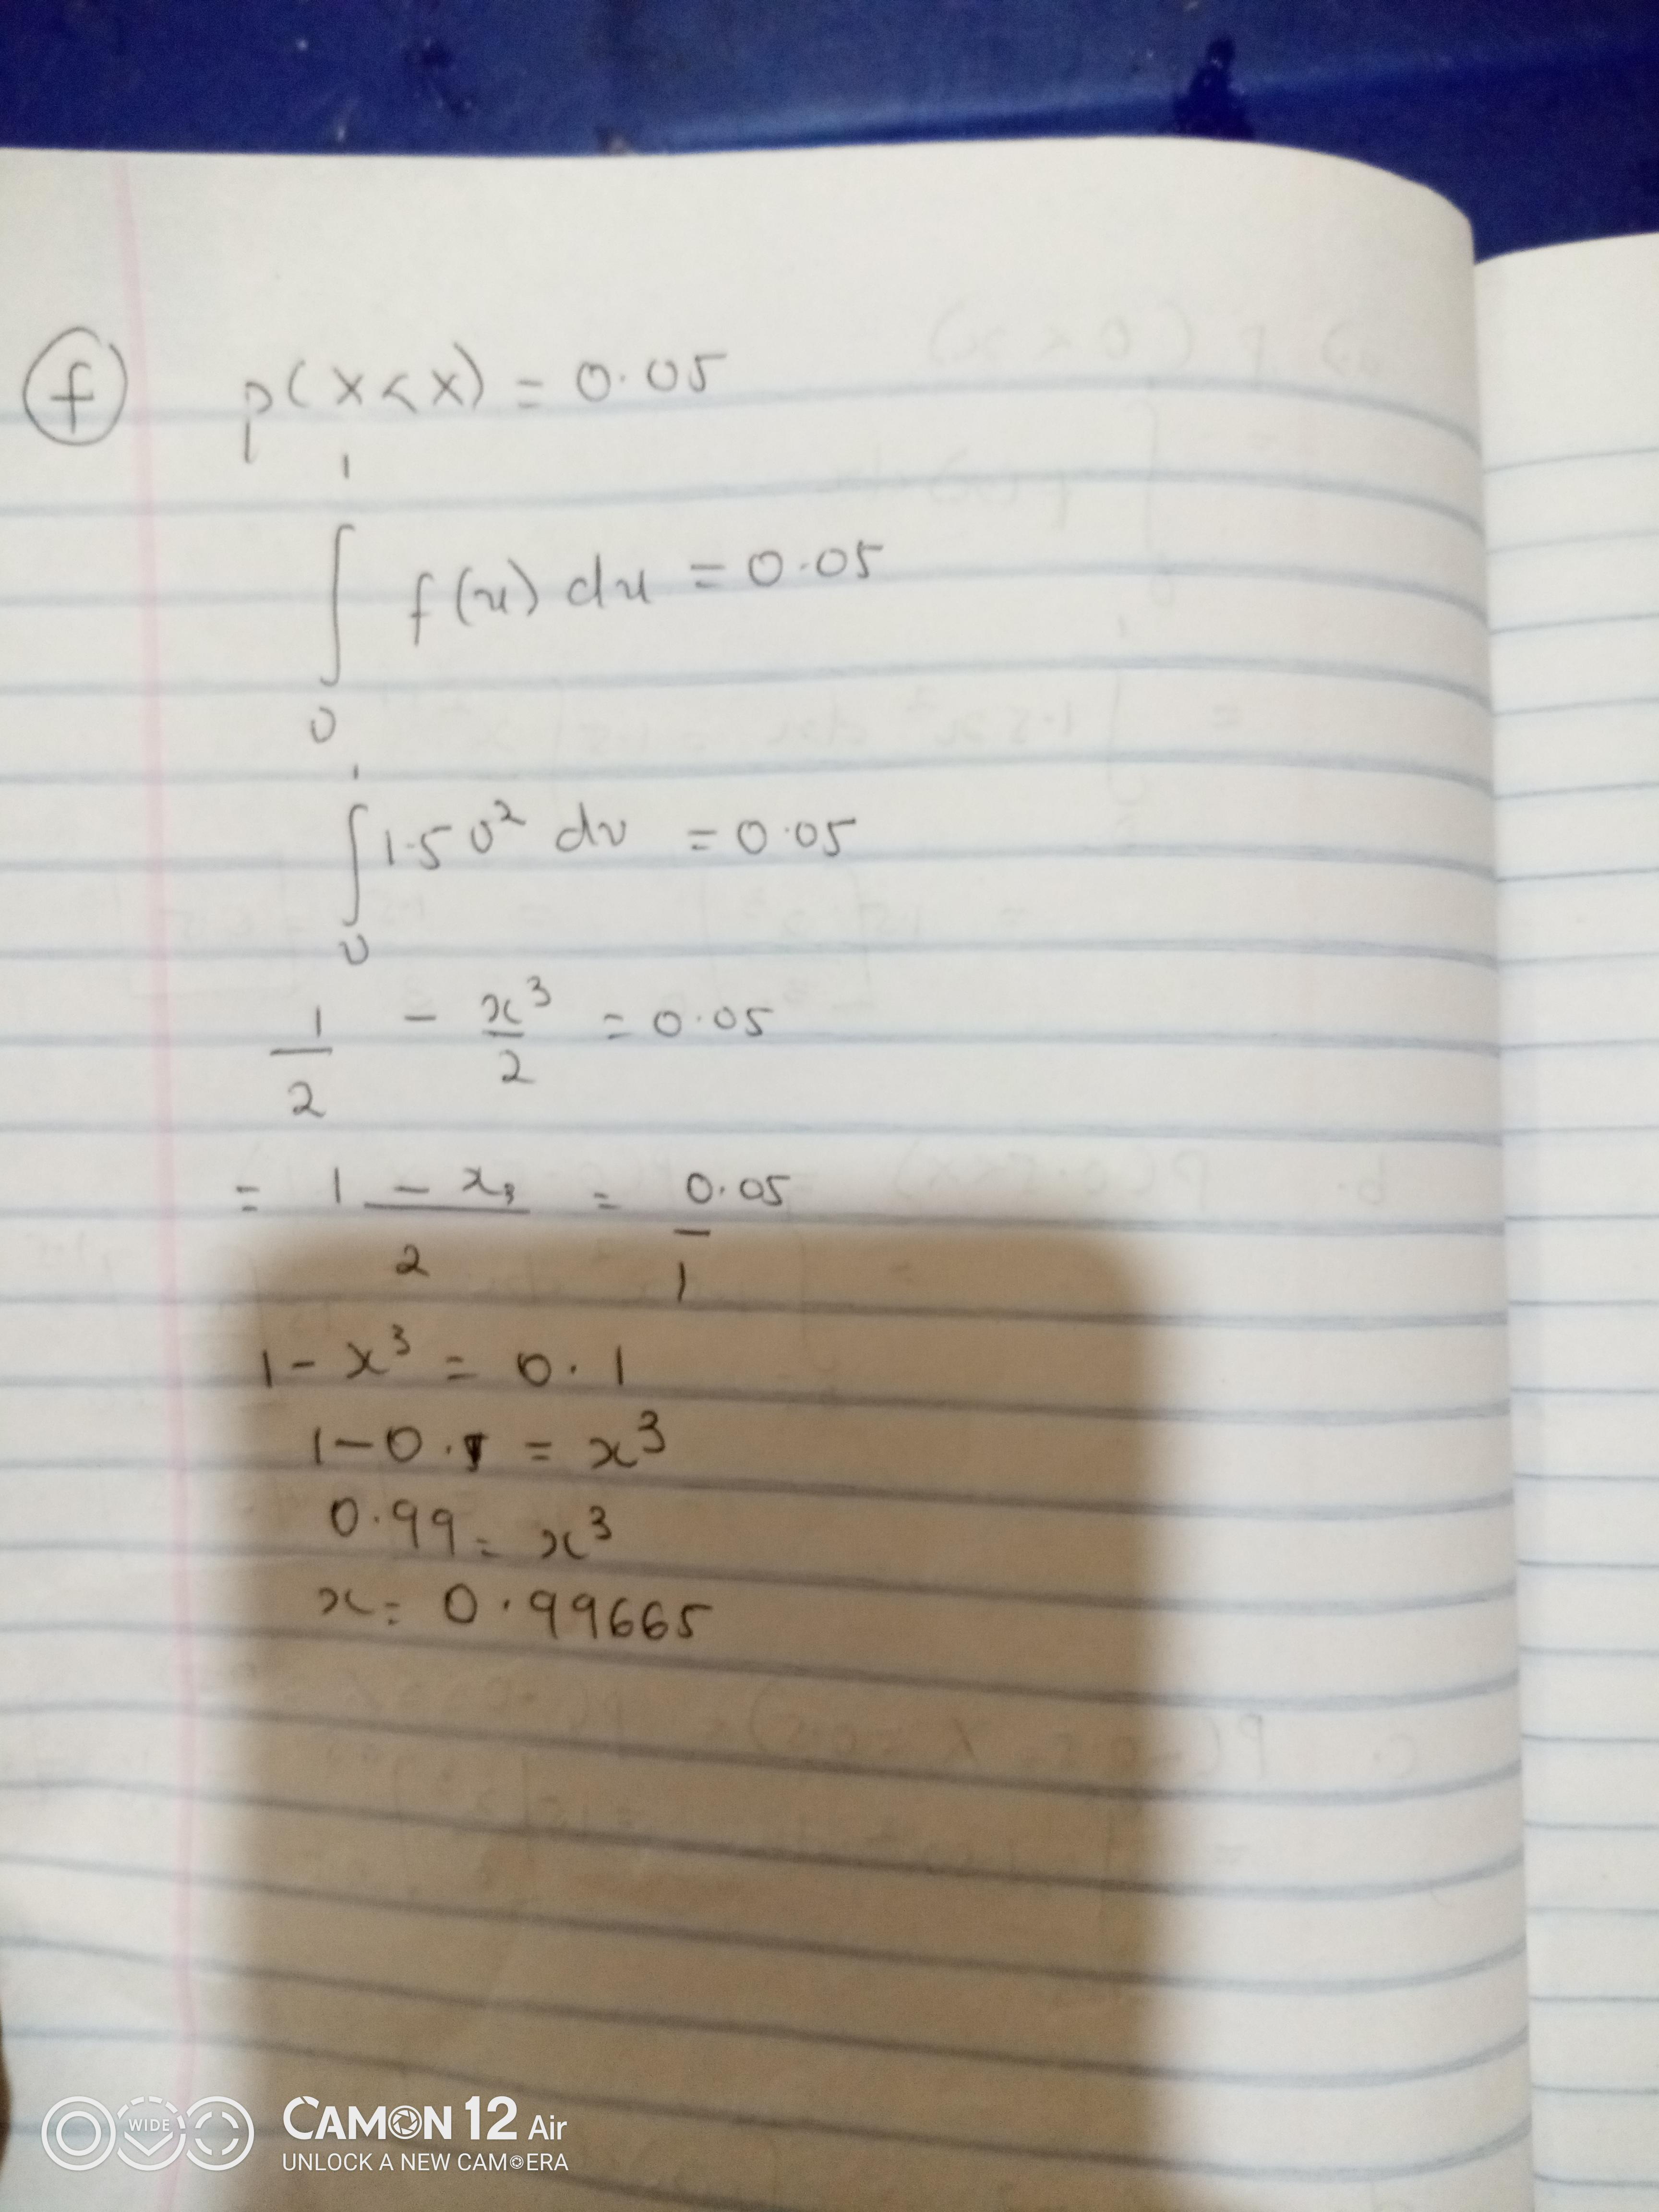 f p(X<X) = 0.05
1
∫ f(u) du = 0.05
0
1
∫ 1.5 U² du = 0.05
0
1/2 - x³/2 = 0.05
= 1 - x₃ / 2 = 0.05 / 1
1 - x³ = 0.1
1 - 0.1 = x³
0.99 = x³
x = 0.99665
WIDE CAMON 12 Air
UNLOCK A NEW CAMERA